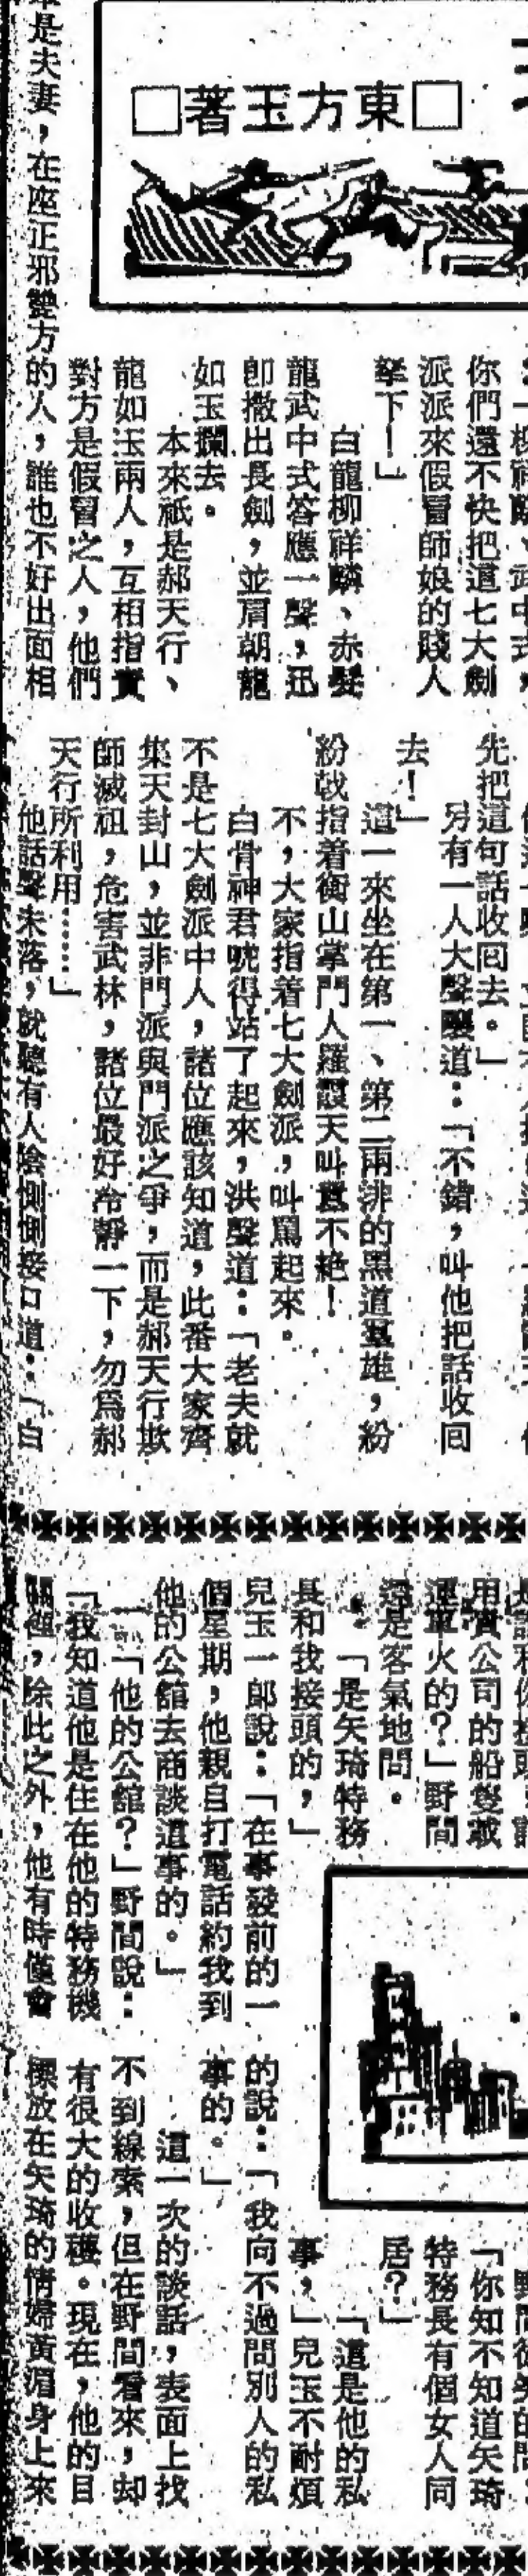 □東方玉著□
你們還不快把這七大劍
派派來假冒師娘的賤人
拏下！」
白龍柳祥麟、赤髮
龍武中式答應一聲，迅
即撤出長劍，並肩朝龍
如玉攔去。
本來祇是郝天行、
龍如玉兩人，互相指責
對方是假冒之人，他們
是夫妻，在座正邪雙方的人，誰也不好出面相
先把這句話收回去。」
另有一人大聲嚷道：「不錯，叫他把話收回
去！」
這一來坐在第一、第二兩排的黑道羣雄，紛
紛戟指着衡山掌門人羅設天叫囂不絕！
不，大家指着七大劍派，叫罵起來。
白骨神君唬得站了起來，洪聲道：「老夫就
不是七大劍派中人，諸位應該知道，此番大家齊
集天封山，並非門派與門派之爭，而是郝天行欺
師滅祖，危害武林，諸位最好冷靜一下，勿爲郝
天行所利用……」
他話聲未落，就聽有人陰惻惻接口道：「白
用貴公司的船隻載
運軍火的？」野間
還是客氣地問。
「是矢琦特務
長和我接頭的，」
兒玉一郎說：「在事發前的一
個星期，他親自打電話約我到
他的公館去商談這事的。」
「他的公館？」野間說：
「我知道他是住在他的特務機
關裡，除此之外，他有時僅會
「你知不知道矢琦
特務長有個女人同
居？」
「這是他的私
事，」兒玉不耐煩
的說：「我向不過問別人的私
事的。」
這一次的談話，表面上找
不到線索，但在野間看來，却
有很大的收穫。現在，他的目
標放在矢琦的情婦黃湄身上來